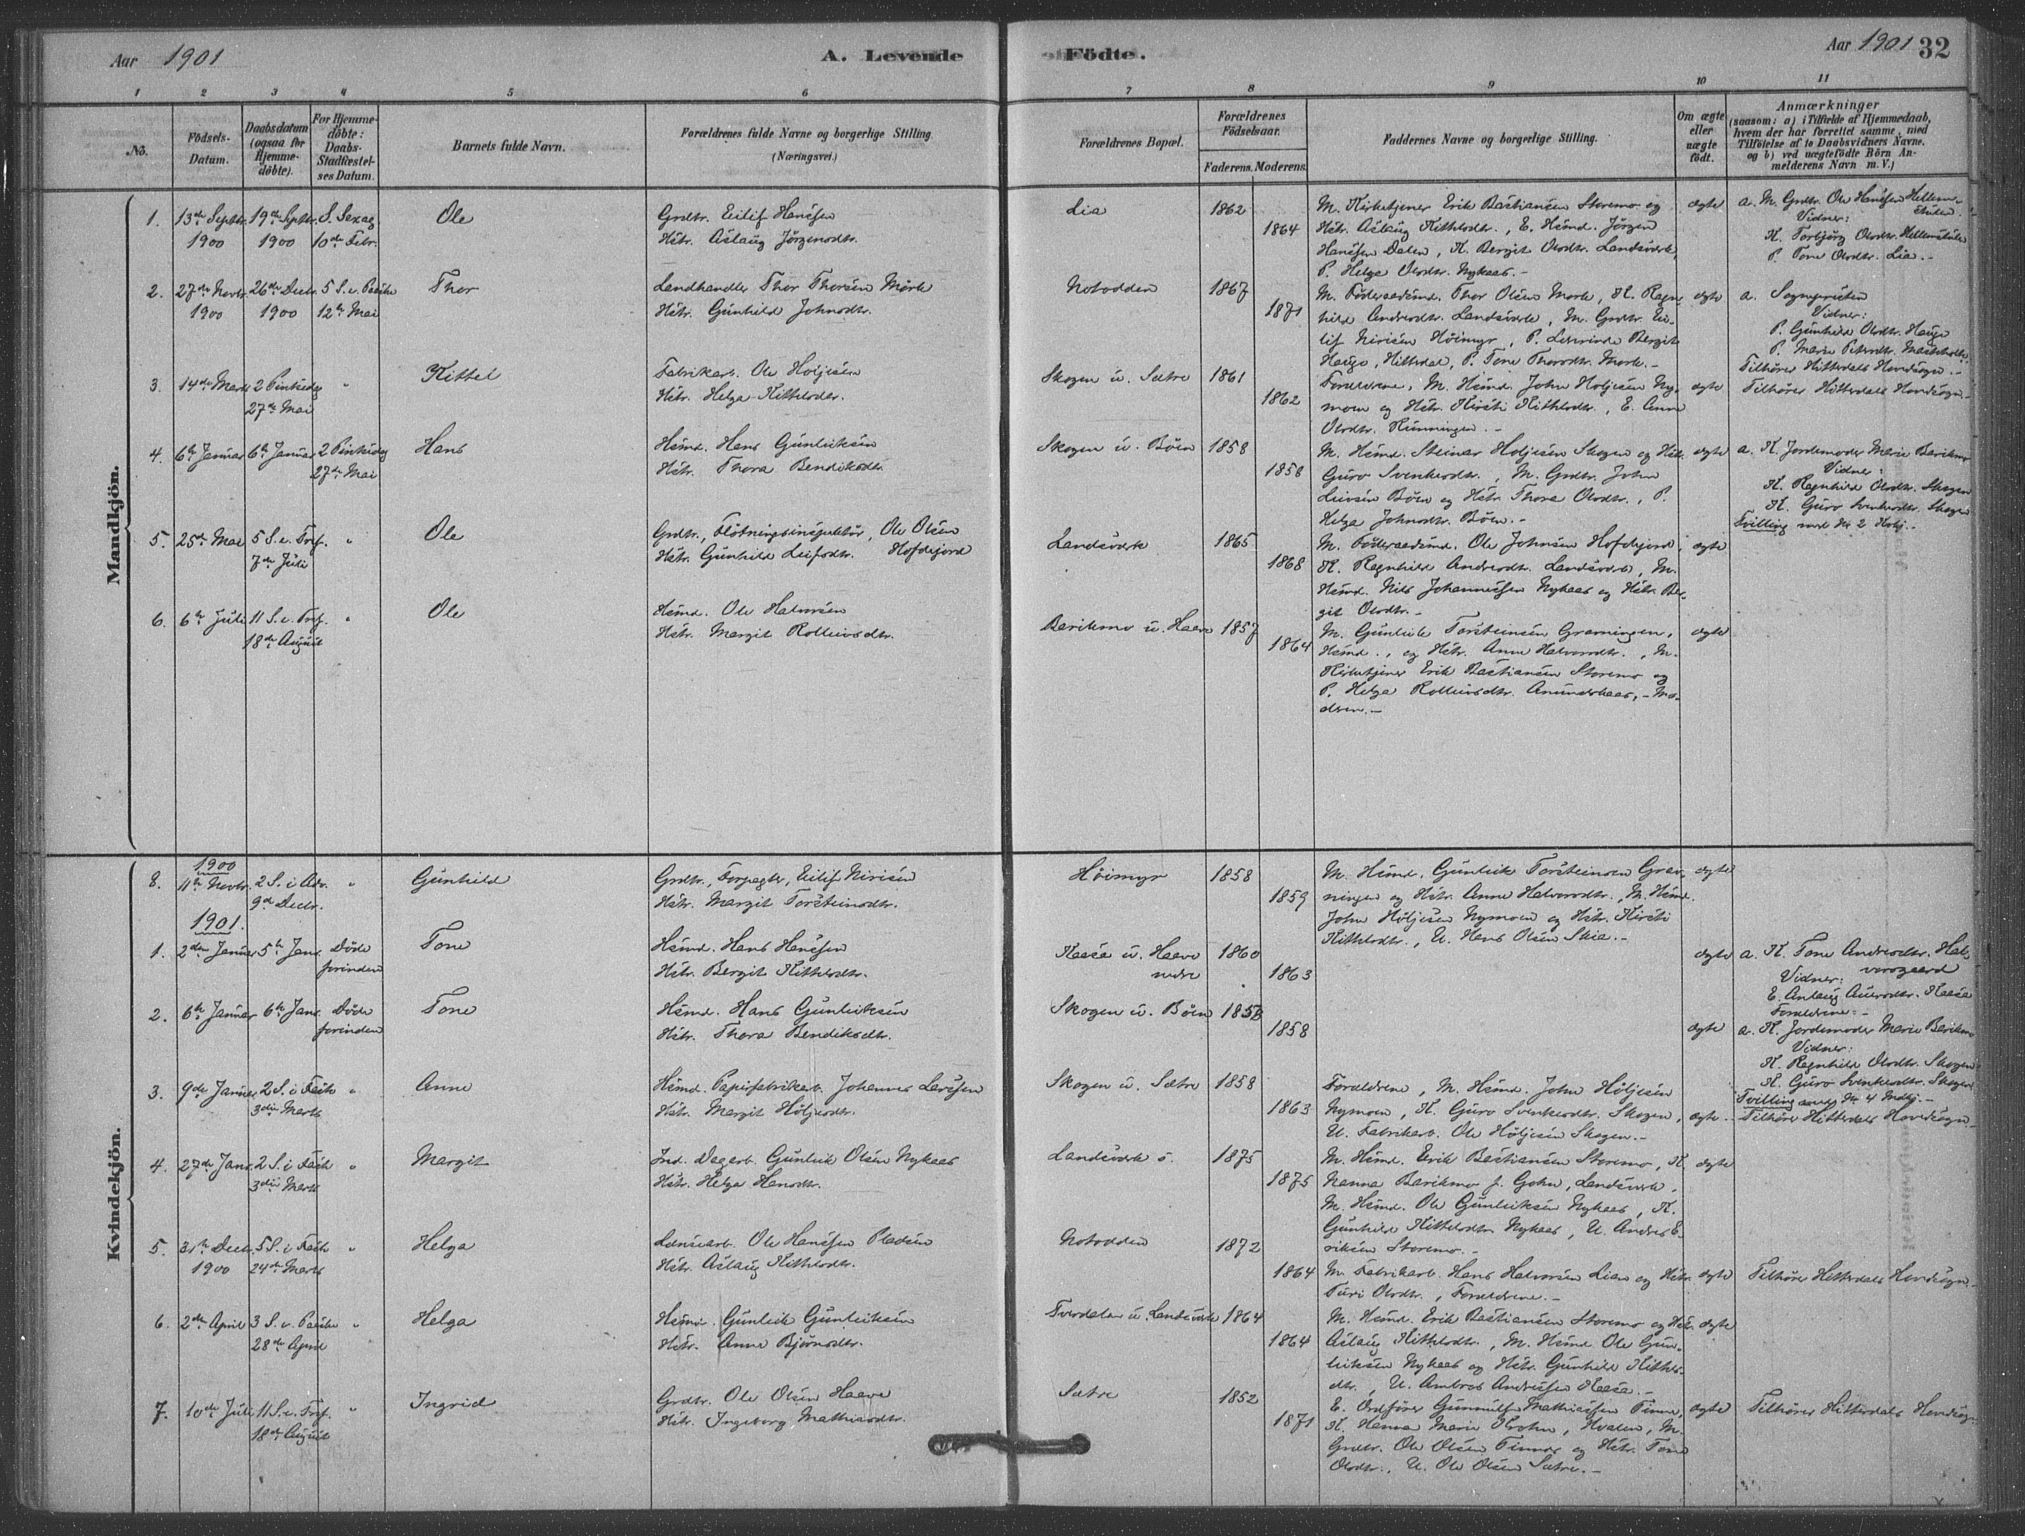 Aar 1901
A. Levende
Födte.
Aar 1901
32
1 2 3 4 5 6 7 8 9 10 11
No.
Födsels-Datum.
Daabsdatum (ogsaa for Hjemmedöbte).
For Hjemmedöbte: Daabs-Stadfæstelses Datum.
Barnets fulde Navn.
Forældrenes fulde Navne og borgerlige Stilling. (Næringsvei.)
Forældrenes Bopæl.
Forældrenes Födselsaar.
Faderens. Moderens.
Faddernes Navne og borgerlige Stilling.
Om ægte eller uægte födt.
Anmærkninger
(saasom: a) i Tilfælde af Hjemmedaab, hvem der har forrettet samme, med Tilföielse af to Daabsvidners Navne. og b) ved uægtefödte Börn Anmelderens Navn m. V.)
Mandkjön.
1. 13de Septbr. 1900
19de Septbr. 1900
S. Sexag. 10de Febr.
Ole
Grdbr. Eilif Hanssen
Hstr. Aslaug Jörgensdtr.
Lia
1862
1864
M. Kirketjener Erik Bastiansen Storemo og
Hstr. Aslaug Kittilsdtr., E. Hsmd. Jörgen
Hanssen Dalen, K. Bergit Olsdtr. Landsverk,
P. Helga Olsdtr. Nykaas.-
ægte
a. M. Grdbr. Ole Hanssen
Vidner:
K. Torbjörg Olsdtr.
P. Tone Olsdtr. Lia.-
2. 27de Novbr. 1900
26de Decbr. 1900
5 S. e. Paaske 12te Mai
Thor
Landhandler Thor Thorsen Mörk
Hstr. Gunhild Johnsdtr.
Notodden
1867
1871
M. Föderaadsmd. Thor Olsen Mork, K. Ragn-
hild Andersdtr. Landsverk, M. Grdbr. Ei-
lif Nirisen Höimyr, P. Lærerinde Bergit
Hauge, Hitterdal, P. Tone Thorsdtr. Mork.-
ægte
a. Sognepresten
Vidner:
P. Gunhild Olsdtr. Hauge
P. Marie Petersdtr.
Tilhörer Hitterdals Hovedsogn.-
3. 14de Marts
2 Pinsedag 27de Mai
"
Kittel
Fabrikarb. Ole Holjesen
Hstr. Helga Kittilsdtr.
Skogen u. Sætre
1861
1862
Forældrene, M. Hsmd. John Holjesen Ny-
moen og Hstr. Kirsti Kittilsdtr., E. Anne
Olsdtr. Rünningen.-
ægte
Tilhörer Hitterdals Hovedsogn.-
4. 6te Januar
6te Januar
2 Pinsedag 27de Mai
Hans
Hsmd. Hans Gunleiksen
Hstr. Thora Bendiksdtr.
Skogen u. Böen
1858
1858
M. Hsmd. Steinar Holjesen Skogen og Hstr.
Guro Svenkesdtr., M. Grdbr. John
Leivsen Böen og Hstr. Thora Olsdtr., P.
Helga Johnsdtr. Böen.-
ægte
a. K. Jordemoder Marie Barikmo
Vidner:
K. Ragnhild Olsdtr. Skogen
K. Guro Svenkesdtr. Skogen
Tvilling med No 2 Kvkj.-
5. 25de Mai
5 S. e. Tref. 7de Juli
"
Ole
Grdbr., Flötningsinspektör, Ole Olsen
Hofdejord
Hstr. Gunhild Leifsdtr.
Landsverk
1865
1868
M. Föderaadsmd. Ole Johnsen Hofdejord,
K. Ragnhild Andersdtr. Landsverk, M.
Hsmd. Nils Johannessen Nykaas og Hstr. Ber-
git Olsdtr.-
ægte
6. 6te Juli
11 S. e. Tref. 18de August
"
Ole
Hsmd. Ole Halvorsen
Hstr. Margit Rolleivsdtr.
Barikmo u. Haave
1857
1864
M. Gunleik Torsteinsen Gravningen,
Hsmd., og Hstr. Anne Halvorsdtr., M.
Kirketjener Erik Bastiansen Storemo og
P. Helga Rolleivsdtr. Amundskaas,- Mo-
deren.-
ægte
Kvindekjön.
1900
8. 11te Novbr.
2 S. i Adv. 9de Decbr.
"
Gunhild
Grdbr., Forpagter, Eilif Nirisen
Hstr. Margit Torsteinsdtr.
Höimyr
1858
1859
M. Hsmd. Gunleik Torsteinsen Grav-
ningen og Hstr. Anne Halvorsdtr., M. Hsmd.
John Höljesen Nymoen og Hstr. Kirsti
Kittilsdtr., U. Hans Olsen Skie.-
ægte
1901.
1. 2den Januar
5te Janr.
Döde forinden
Tone
Hsmd. Hans Hanssen
Hstr. Bergit Kittilsdtr.
Kaasa u. Haave nedre
1860
1863
ægte
a. K. Tone Andersdtr. Hal-
vorsgaard
Vidner:
E. Aslaug Aversdtr. Kaasa
Forældrene.-
2. 6te Januar
6te Janr.
Döde forinden
Tone
Hsmd. Hans Gunleiksen
Hstr. Thora Bendiksdtr.
Skogen u. Böen
1858
1858
ægte
a. K. Jordemoder Marie Barikmo
Vidner:
K. Ragnhild Olsdtr. Skogen
K. Guro Svenkesdtr. Skogen
Tvilling med No 4 Mdkj.-
3. 9de Januar
2 S. i Faste 3die Marts
"
Anne
Hsmd. Papirfabrikarb. Johannes Larssen
Hstr. Margit Höljesdtr.
Skogen u. Sætre
1858
1863
Forældrene, M. Hsmd. John Höljesen
Nymoen, K. Guro Svenkesdtr. Skogen,
U. Fabrikarb. Ole Höljesen Skogen.-
ægte
Tilhörer Hitterdals Hovedsogn.-
4. 27de Janr.
2 S. i Faste 3die Marts
"
Margit
Ind. Dagarb. Gunleik Olsen Nykaas
Hstr. Helga Hansdtr.
Landsverk ö.
1875
1875
M. Hsmd. Erik Bastiansen Storemo, K.
Nanna Barikmo f. Gohn, Landsverk,
M. Hsmd. Ole Gunleiksen Nykaas, K.
Gunhild Kittilsdtr. Nykaas, U. Anders E-
riksen Storemo.-
ægte
5. 31te Decbr. 1900
5 S. i Faste 24de Marts
"
Helga
Lænsearb. Ole Hanssen Pladsen
Hstr. Aslaug Kittilsdtr.
Notodden
1872
1864
M. Fabrikarb. Hans Halvorsen Lien og Hstr.
Turi Olsdtr., Forældrene.-
ægte
Tilhörer Hitterdals Hovedsogn.-
6. 2den April
3 S. e. Paaske 28de April
"
Helga
Hsmd. Gunleik Gunleiksen
Hstr. Anne Björnsdtr.
Tverdalen u. Landsverk
1864
1864
M. Hsmd. Erik Bastiansen Storemo og Hstr.
Aslaug Kittilsdtr., M. Hsmd Ole Gun-
leiksen Nykaas og Hstr. Gunhild Kittils-
dtr., U. Ambros Anderssen Kaasa.-
ægte
7. 10de Juli
11 S. e. Tref. 18de August
"
Ingrid
Grdbr. Ole Olsen Haave
Hstr. Ingeborg Mathiasdtr.
Sætre
1852
1871
E. Ordförer Gunnulf Mathiassen Tinne,
K. Hanna Marie Krohn, Hvalen, M.
Grdbr. Ole Olsen Tinnes og Hstr. Tone
Olsdtr., U. Ole Olsen Sætre.-
ægte
Tilhörer Hitterdals Hovedsogn.